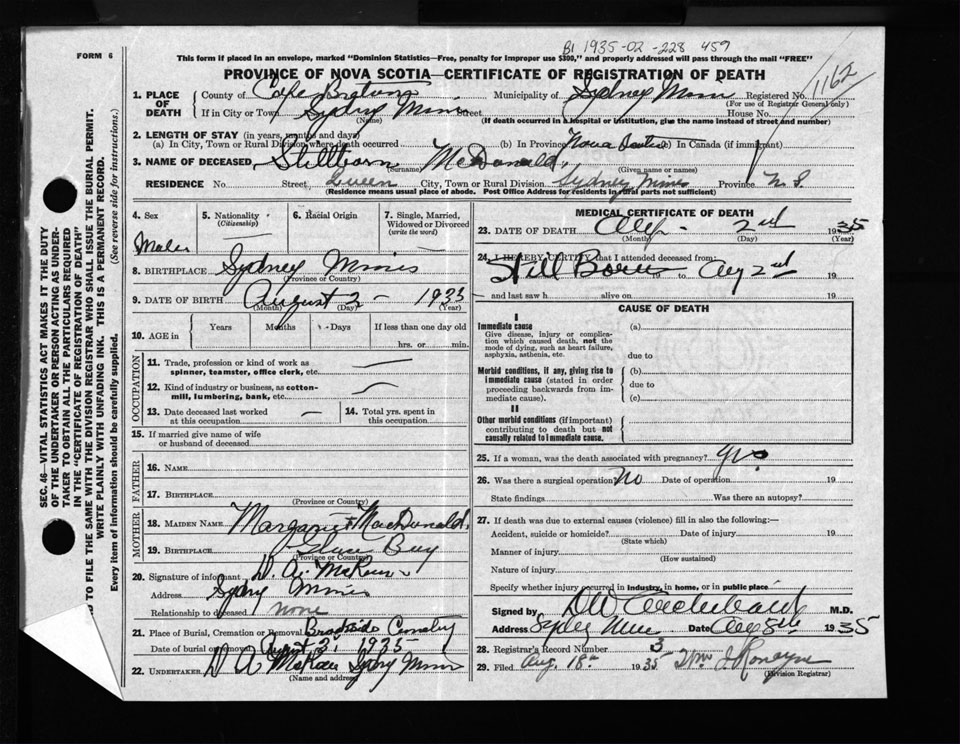 FORM 6
1935-02-228 459
This form if placed in an envelope, marked "Dominion Statistics—Free, penalty for improper use $300," and properly addressed will pass through the mail "FREE"
PROVINCE OF NOVA SCOTIA—CERTIFICATE OF REGISTRATION OF DEATH
1162
1. PLACE OF DEATH
County of Cape Breton Municipality of Sydney Mines Registered No.
(For use of Registrar General only)
If in City or Town Sydney Mines Street House No.
(Name) (If death occurred in a hospital or institution, give the name instead of street and number)
2. LENGTH OF STAY (in years, months and days)
(a) In City, Town or Rural Division where death occurred (b) In Province Nova Scotia (c) In Canada (if immigrant)
3. NAME OF DECEASED Stillborn McDonald
(Surname) (Given name or names)
RESIDENCE No. Street, Queen City, Town or Rural Division Sydney Mines Province N.S.
(Residence means usual place of abode. Post Office Address for residents in rural parts not sufficient)
SEC. 46—VITAL STATISTICS ACT MAKES IT THE DUTY
OF THE UNDERTAKER OR PERSON ACTING AS UNDER-
TAKER TO OBTAIN ALL THE PARTICULARS REQUIRED
IN THE "CERTIFICATE OF REGISTRATION OF DEATH"
TO FILE THE SAME WITH THE DIVISION REGISTRAR WHO SHALL ISSUE THE BURIAL PERMIT.
WRITE PLAINLY WITH UNFADING INK. THIS IS A PERMANENT RECORD.
Every item of information should be carefully supplied. (See reverse side for instructions.)
4. Sex Male
5. Nationality (Citizenship)
6. Racial Origin
7. Single, Married, Widowed or Divorced (write the word)
8. BIRTHPLACE Sydney Mines
(Province or Country)
9. DATE OF BIRTH August 2 - 1935
(Month) (Day) (Year)
10. AGE in Years Months Days If less than one day old
hrs. or min.
OCCUPATION
11. Trade, profession or kind of work as spinner, teamster, office clerk, etc.
12. Kind of industry or business, as cotton-mill, lumbering, bank, etc.
13. Date deceased last worked at this occupation
14. Total yrs. spent in this occupation
15. If married give name of wife or husband of deceased
FATHER
16. NAME
17. BIRTHPLACE
(Province or Country)
MOTHER
18. MAIDEN NAME Margaret MacDonald
19. BIRTHPLACE Glace Bay
(Province or Country)
20. Signature of informant D. A.
Address Sydney Mines
Relationship to deceased none
21. Place of Burial, Cremation or Removal
Date of burial or removal August 3 1935
22. UNDERTAKER D A Sydney Mines
(Name and address)
MEDICAL CERTIFICATE OF DEATH
23. DATE OF DEATH Aug - 2nd 1935
(Month) (Day) (Year)
24. I HEREBY CERTIFY that I attended deceased from:
Still Born to Aug 2nd 19
and last saw h alive on 19
CAUSE OF DEATH
I
Immediate cause
Give disease, injury or complication which caused death, not the mode of dying, such as heart failure, asphyxia, asthenia, etc.
(a)
due to
Morbid conditions, if any, giving rise to immediate cause (stated in order proceeding backwards from immediate cause).
(b)
due to
(c)
II
Other morbid conditions (if important) contributing to death but not causally related to immediate cause.
25. If a woman, was the death associated with pregnancy? yes
26. Was there a surgical operation? No Date of operation 19
State findings Was there an autopsy?
27. If death was due to external causes (violence) fill in also the following:—
Accident, suicide or homicide? Date of injury 19
(State which)
Manner of injury
(How sustained)
Nature of injury
Specify whether injury occurred in industry, in home, or in public place
Signed by D W Archibald M.D.
Address Sydney Mines Date Aug 8th 1935
28. Registrar's Record Number 3
29. Filed Aug. 18th 1935 Ronayne
(Division Registrar)